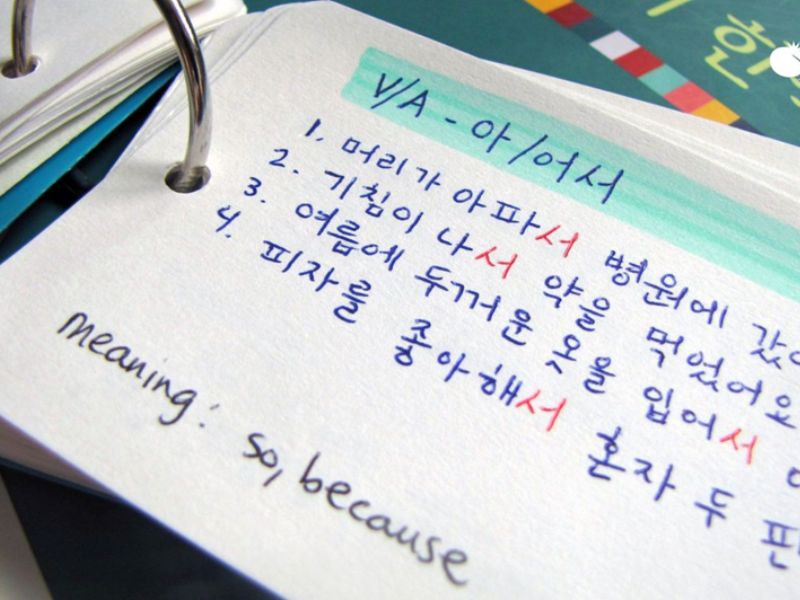 V/A - 아/어서
1. 머리가 아파서 병원에 갔
2. 기침이 나서 약을 먹었어요
3. 여름에 두꺼운 옷을 입어서
4. 피자를 좋아해서 혼자 두 판
meaning: so, because
한